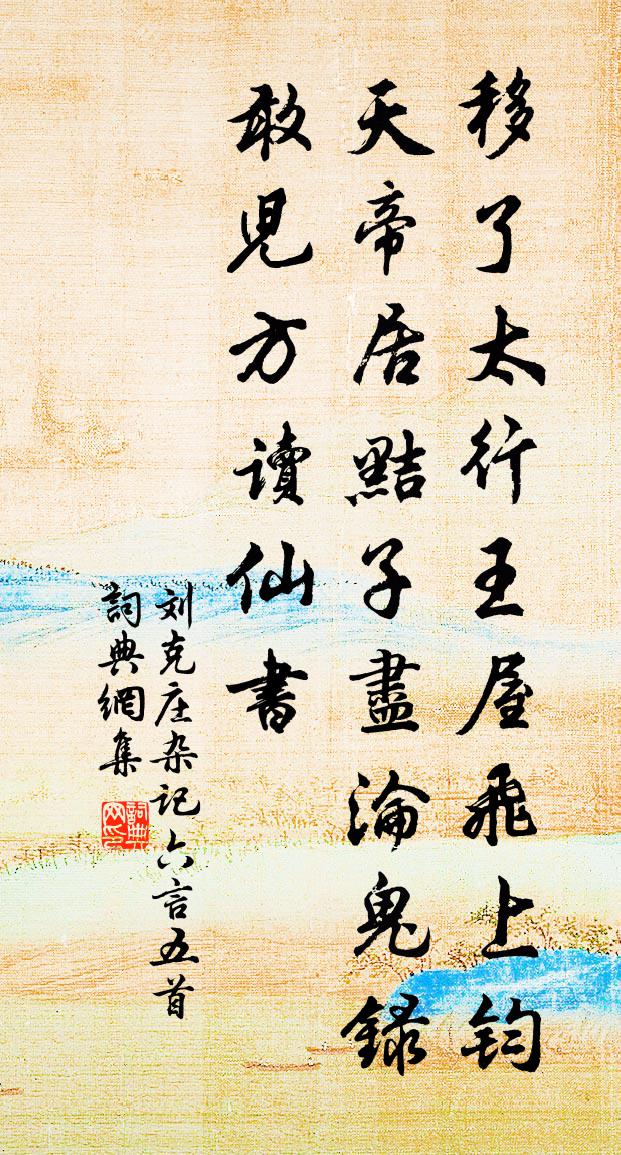 移了太行王屋飛上鈞
天帝居點子盡淪鬼錄
敢兒方讀仙書
刘克庄杂记六言五首
詞典網集